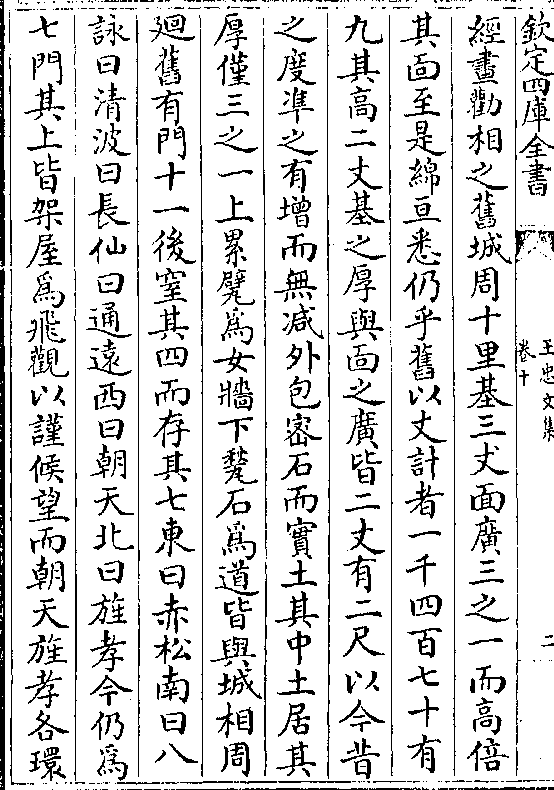 欽定四庫全書
王忠文集
卷十
二
經畫勸相之舊城周十里基三丈面廣三之一而高倍
其面至是綿亘悉仍乎舊以丈計者一千四百七十有
九其高二丈基之厚與面之廣皆二丈有二尺以今昔
之度凖之有增而無减外包密石而實土其中土居其
厚僅三之一上累甓為女牆下甃石為道皆與城相周
廻舊有門十一後窒其四而存其七東曰赤松南曰八
詠曰清波曰長仙曰通遠西曰朝天北曰旌孝今仍為
七門其上皆架屋為飛觀以謹候望而朝天旌孝各環